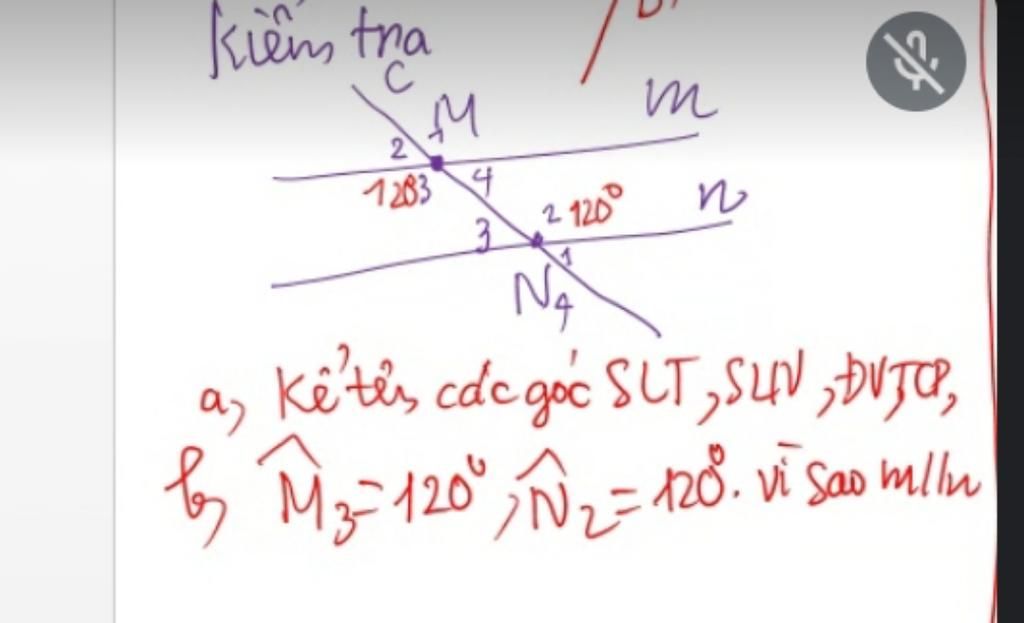 Kiểm tra
C
M
m
2 1
1203 4
n
2 120°
3
1
N 4
a, Kể tên các góc SLT, SLN, ĐV, TCP,
b, M̂₃ = 120°, N̂₂ = 120°. vì sao m//n